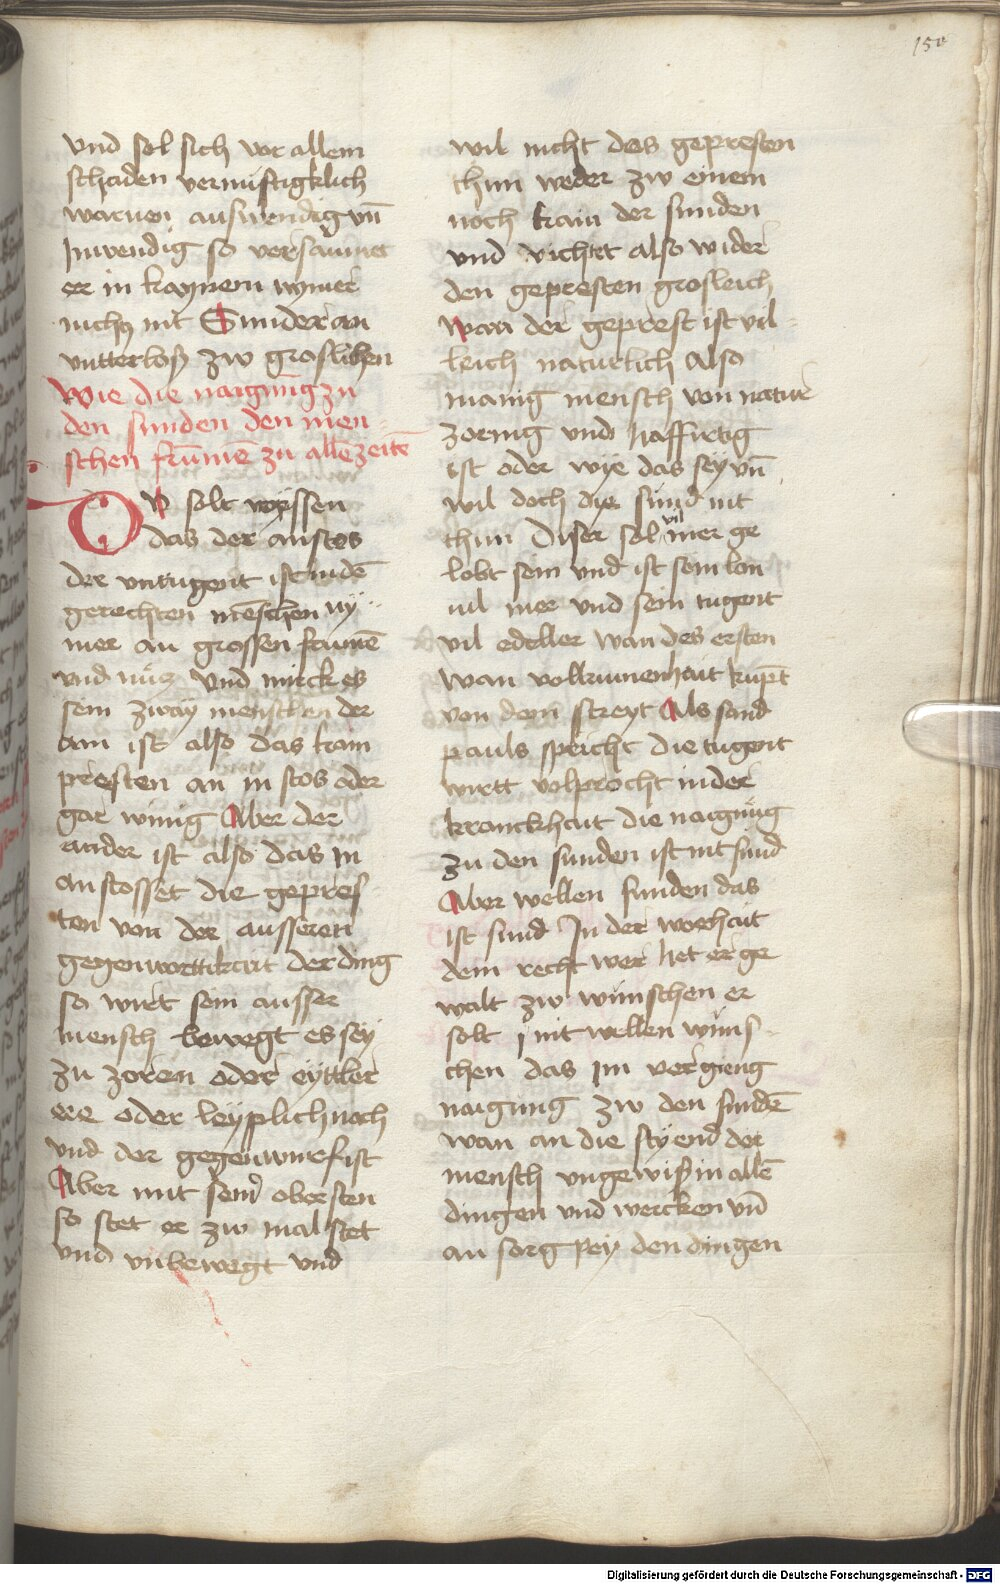 150
vnd sol sich vor allem
schaden vernuftigklich
warnen auswendig vn̄
Inwendig so versaumet
er in kaynem nymer
nichcz nit Sunder an
vntterlosz zw groslichen
Wie die naigung zu
den sunden den men-
schen frūmē zu allē zeitē
Dv solt wyssen
das der anstos
der vntugent ist in dē
gerechten mēschen ny-
mer an grossen frumē
vnd nücz Vnd mirck es
sein zway menschen der
ain ist also das kain
presten an in stos oder
gar winig Aber der
ander ist also das In
anstosset die gepres-
ten von der ausseren
gegenwortikait der ding
so wirt sein ausser
mensch bewegt es sey
zu zoren oder eyttler
ere oder leyplich nach
vnd der gegenwurf ist
Aber mit sein obersten
so stet er zw mal stet
vnd vnbewegt vnd
wil nicht des gepresten
thun weder zw einem
noch kain der sunden
vnd vichtet also wider
den gepresten grosleich
Wan der geprest ist vil-
leich naturlich Also
manig mensch von natur
zornig vnd hoffirtig
ist oder wye das sey vn̄
wil doch die sünd nit
thun Diser sol vil mer ge
lobt sein vnd ist sein lon
vil mer vnd sein tugent
vil edeller wan des ersten
wan vollkumenhait kupt
von dem streyt Als sand
pauls spricht die tugent
wirtt volprocht in der
kranckhait die naigung
zu den sunden ist nit sund
Aber wellen sunden das
ist sund In der worhait
dem recht wer het er ge
walt zw wünschen er
solt nit wellen wüns-
chen das im vergieng
naigung zw den sundē
wan an die styend der
mensch vngewisz in allē
dingen vnd wercken vn̄
an sorg pey den dingen
Digitalisierung gefördert durch die Deutsche Forschungsgemeinschaft - DFG